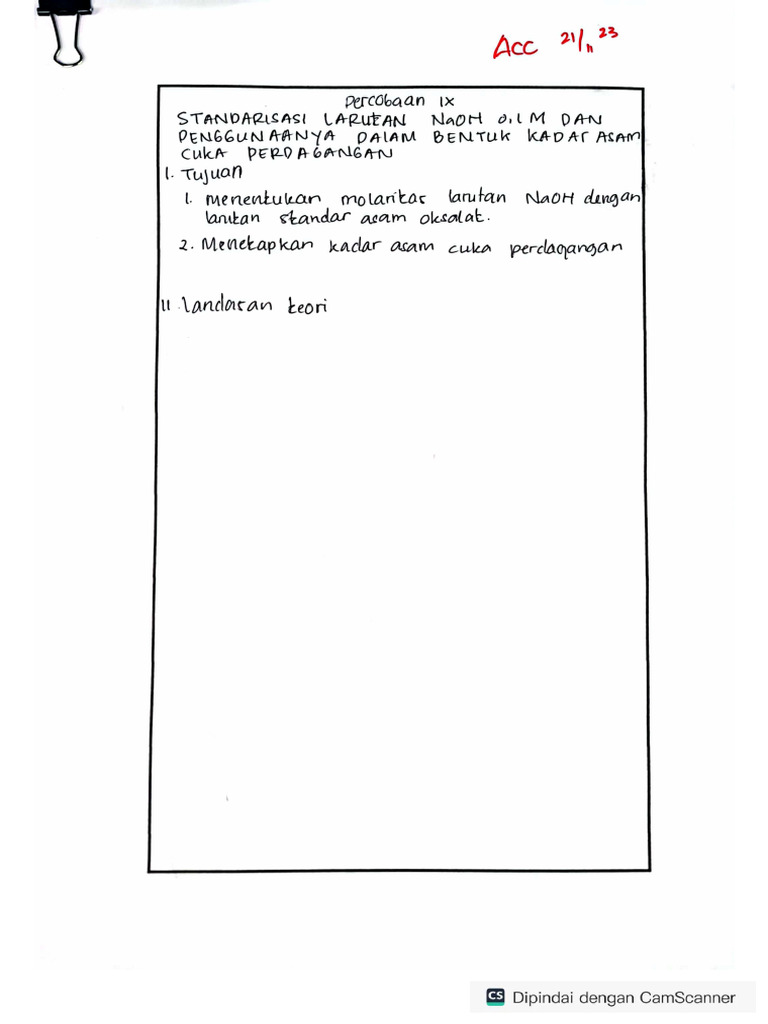 Acc 21/11 23
Percobaan IX
STANDARISASI LARUTAN NaOH 0,1 M DAN
PENGGUNAANYA DALAM BENTUK KADAR ASAM
CUKA PERDAGANGAN
I. Tujuan
1. Menentukan molaritas larutan NaOH dengan
larutan standar asam oksalat.
2. Menetapkan kadar asam cuka perdagangan
II. Landasan teori
CS Dipindai dengan CamScanner